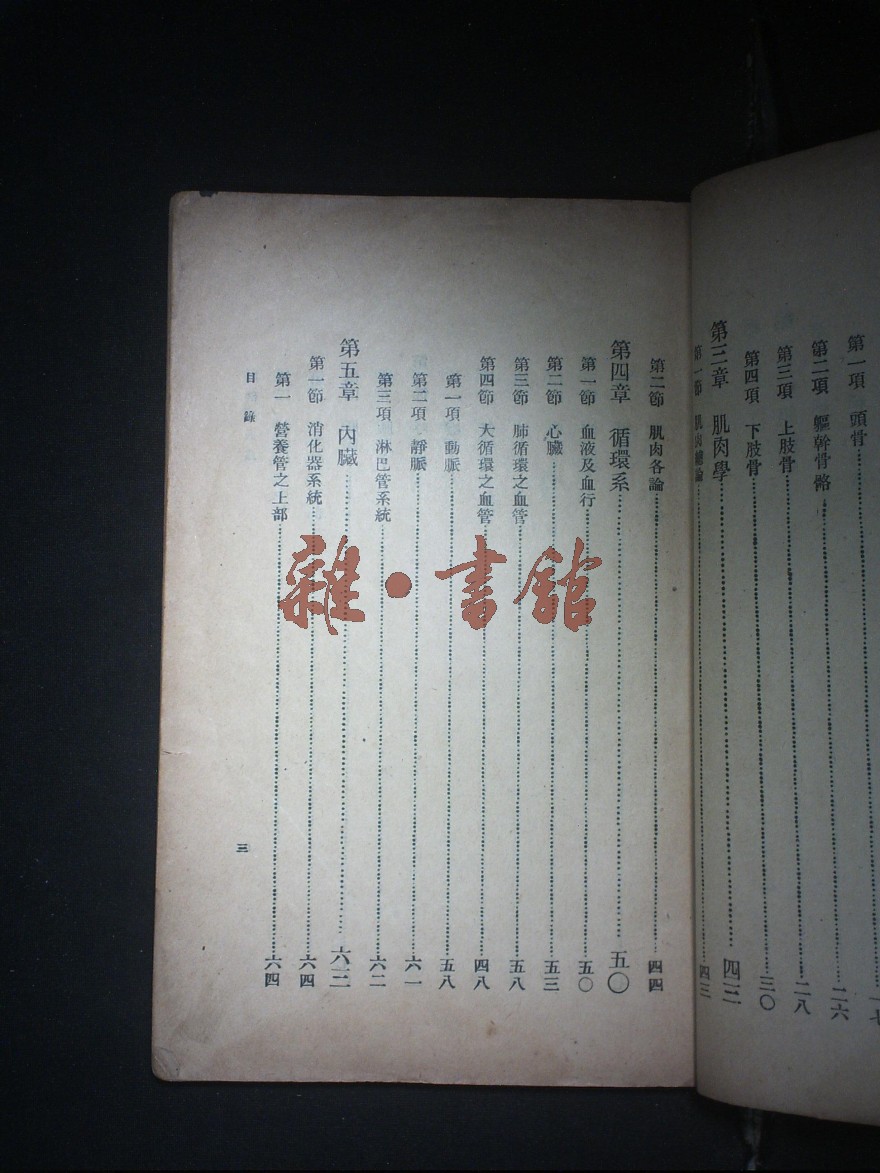 第一項 頭骨……一七
第二項 軀幹骨骼……二六
第三項 上肢骨……二八
第四項 下肢骨……三〇
第三章 肌肉學……四三
第一節 肌肉總論……四三
第二節 肌肉各論……四四
第四章 循環系……五〇
第一節 血液及血行……五〇
第二節 心臟……五三
第三節 肺循環之血管……五八
第四節 大循環之血管……四八
第一項 動脈……五八
第二項 靜脈……六一
第三項 淋巴管系統……六二
第五章 內臟……六三
第一節 消化器系統……六四
第一 營養管之上部……六四
目錄
三
雜·書館